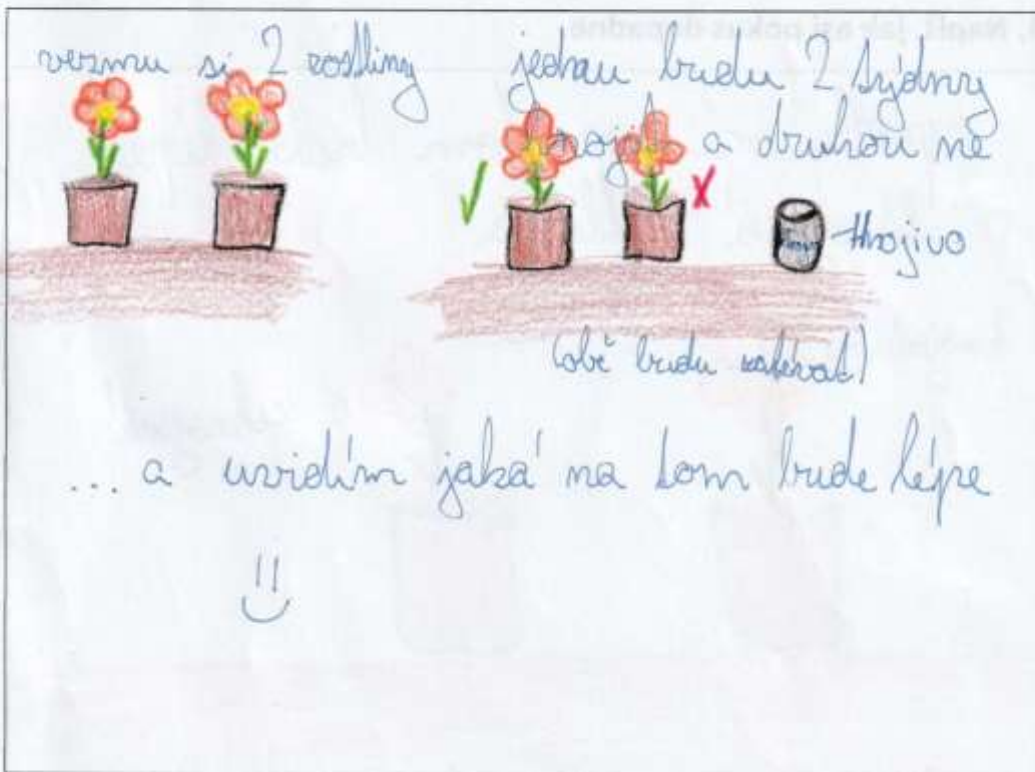 vezmu si 2 rostliny
jednou budu 2 týdny
hnojit a druhou ne
Hnojivo
(obě budu zalévat)
... a uvidím jaká na tom bude lépe